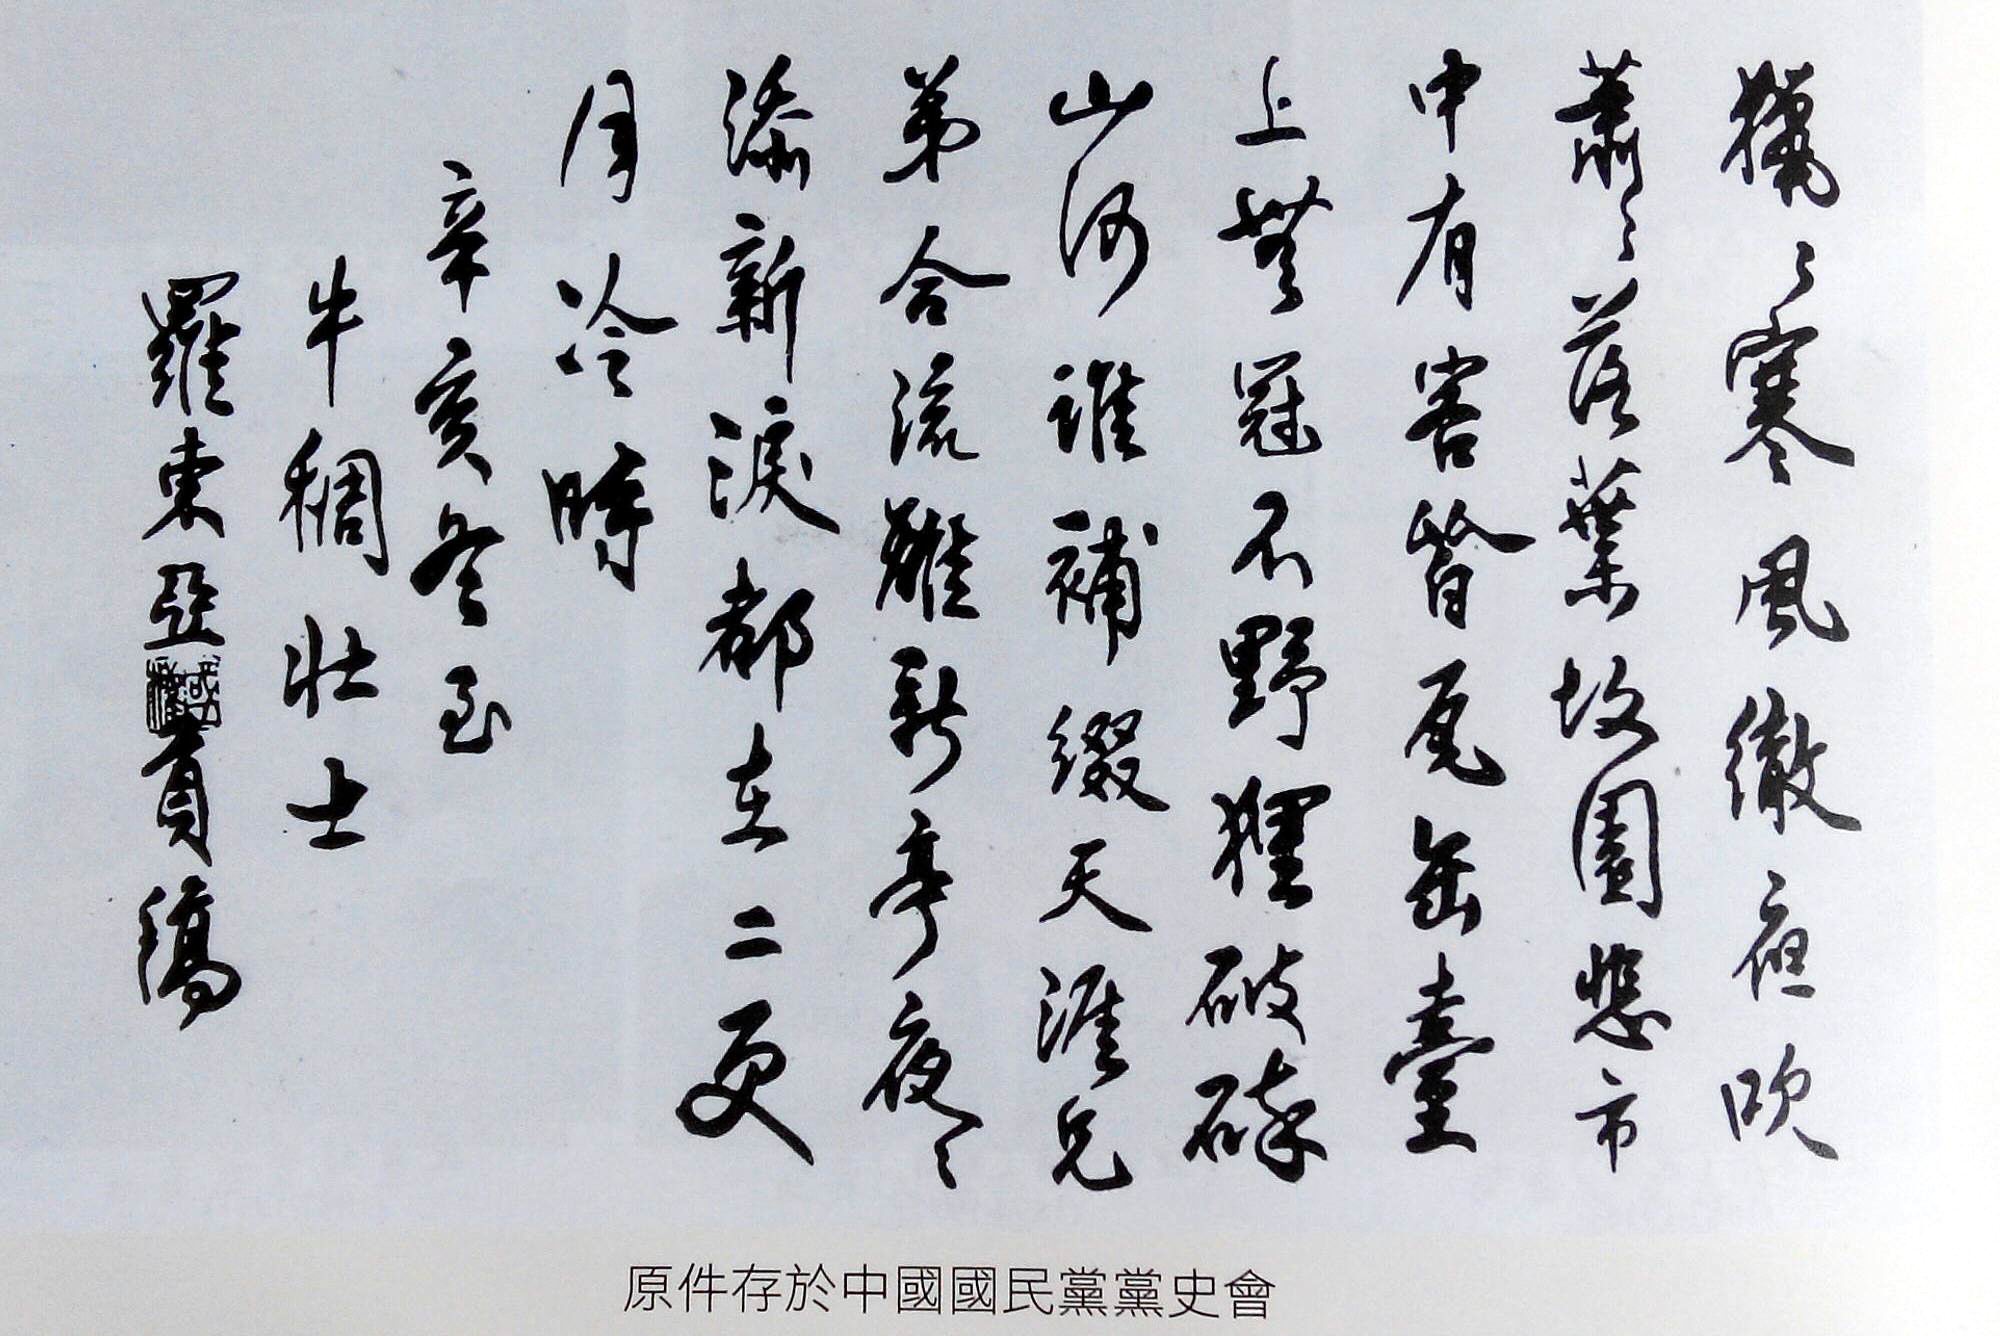 獵々寒風徹夜吹
蕭々落葉故園悲市
中有害皆瓦缶臺
上無冠不野狸破碎
山河誰補綴天涯兄
弟合流離新亭夜々
添新淚都在二更
月冷時
辛亥冬至
牛稠壯士
羅東亞稿
原件存於中國國民黨黨史會